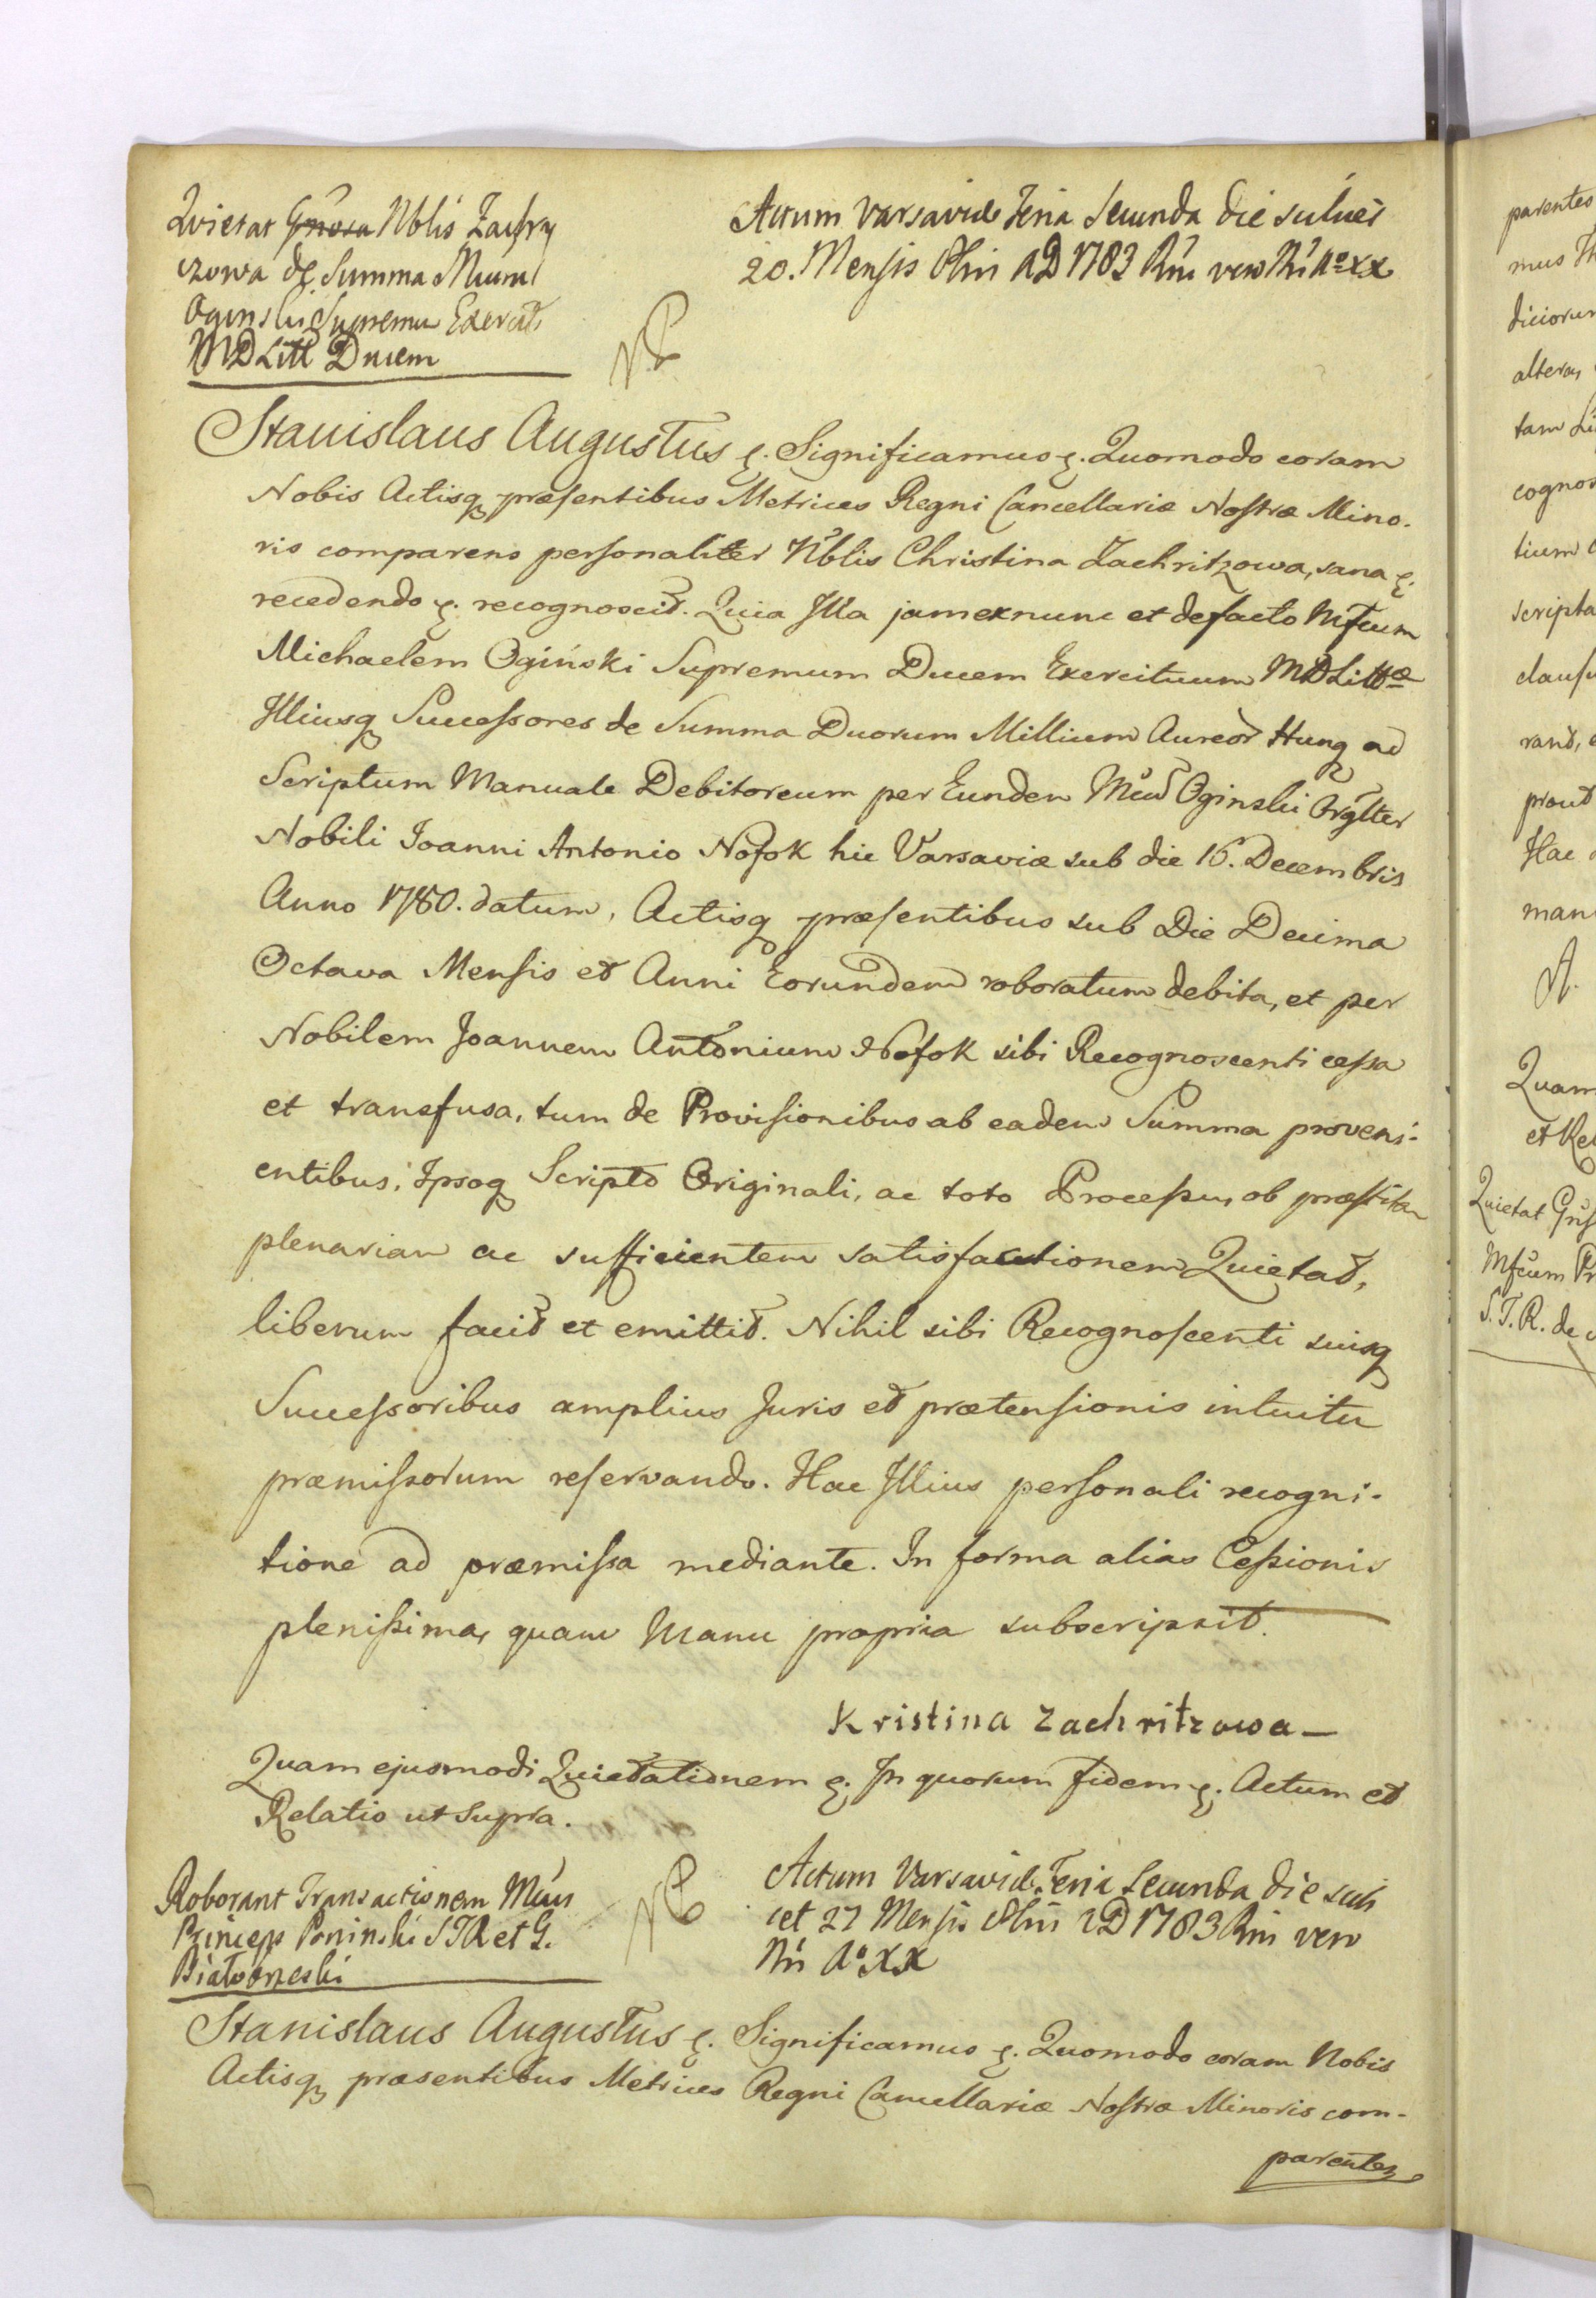 Qvietat G̃nosa Nblis Zachry
czowa de Summa Mcum
Oginski Supremu Exercit
MDLitt Ducem
NP
Actum Varsaviæ Feria Secunda die scilicet
20. Mensis 8bris AD 1783 Rni vero Nri Aº XX
Stanislaus Augustus &. Significamus &. Quomodo coram
Nobis Actisq præsentibus Metrices Regni Cancellariæ Nostræ Mino-
ris comparens personaliter Nblis Christina Zachritzowa, sana &.
recedendo &. recognovit. Quia Illa jam exnunc et defacto Mfcum
Michaelem Ogiński Supremum Ducem Exercituum MDLittæ
Illiusq Successores de Summa Duorum Millium Aureor Hung ad
Scriptum Manuale Debitoreum per Eundem Mcum Oginski Orgltter
Nobili Joanni Antonio Nofok hic Varsaviæ sub die 16. Decembris
Anno 1780. datum, Actisq præsentibus sub Die Decima
Octava Mensis et Anni Eorundem roboratum debita, et per
Nobilem Joannem Antonium Nofok sibi Recognoscenti cessa
et transfusa, tum de Provisionibus ab eadem Summa proveni-
entibus, Ipsoq Scripto Originali, ac toto Processu, ob præstitam
plenariam ac sufficientem satisfactionem Quietat,
liberum facit et emittit. Nihil sibi Recognoscenti suisq
Successoribus amplius Juris et prætensionis intuitu
præmissorum reservando. Hac Illius personali recogni-
tione ad præmissa mediante. In forma alias Cessionis
plenissima, quam Manu propria subscripsit.
Kristina Zachritzowa —
Quam ejusmodi Quietationem &. In quorum fidem &. Actum et
Relatio ut Supra.
Roborant Transactionem Mcus
Princeps Poninski STR et G.
Białobrzeski
NP
Actum Varsaviæ Feria Secunda die scili
cet 27 Mensis 8bris AD 1783 Rni vero
Nri Aº XX
Stanislaus Augustus &. Significamus &. Quomodo coram Nobis
Actisq præsentibus Metrices Regni Cancellariæ Nostræ Minoris com-
parentes
parentes
mus
dicior
altera,
tam
cognos
tium
scripta
clausu
rant,
prout
Hac
man
Quam
et Rel
Quietat
Mfcum Pr
S.T.R. de